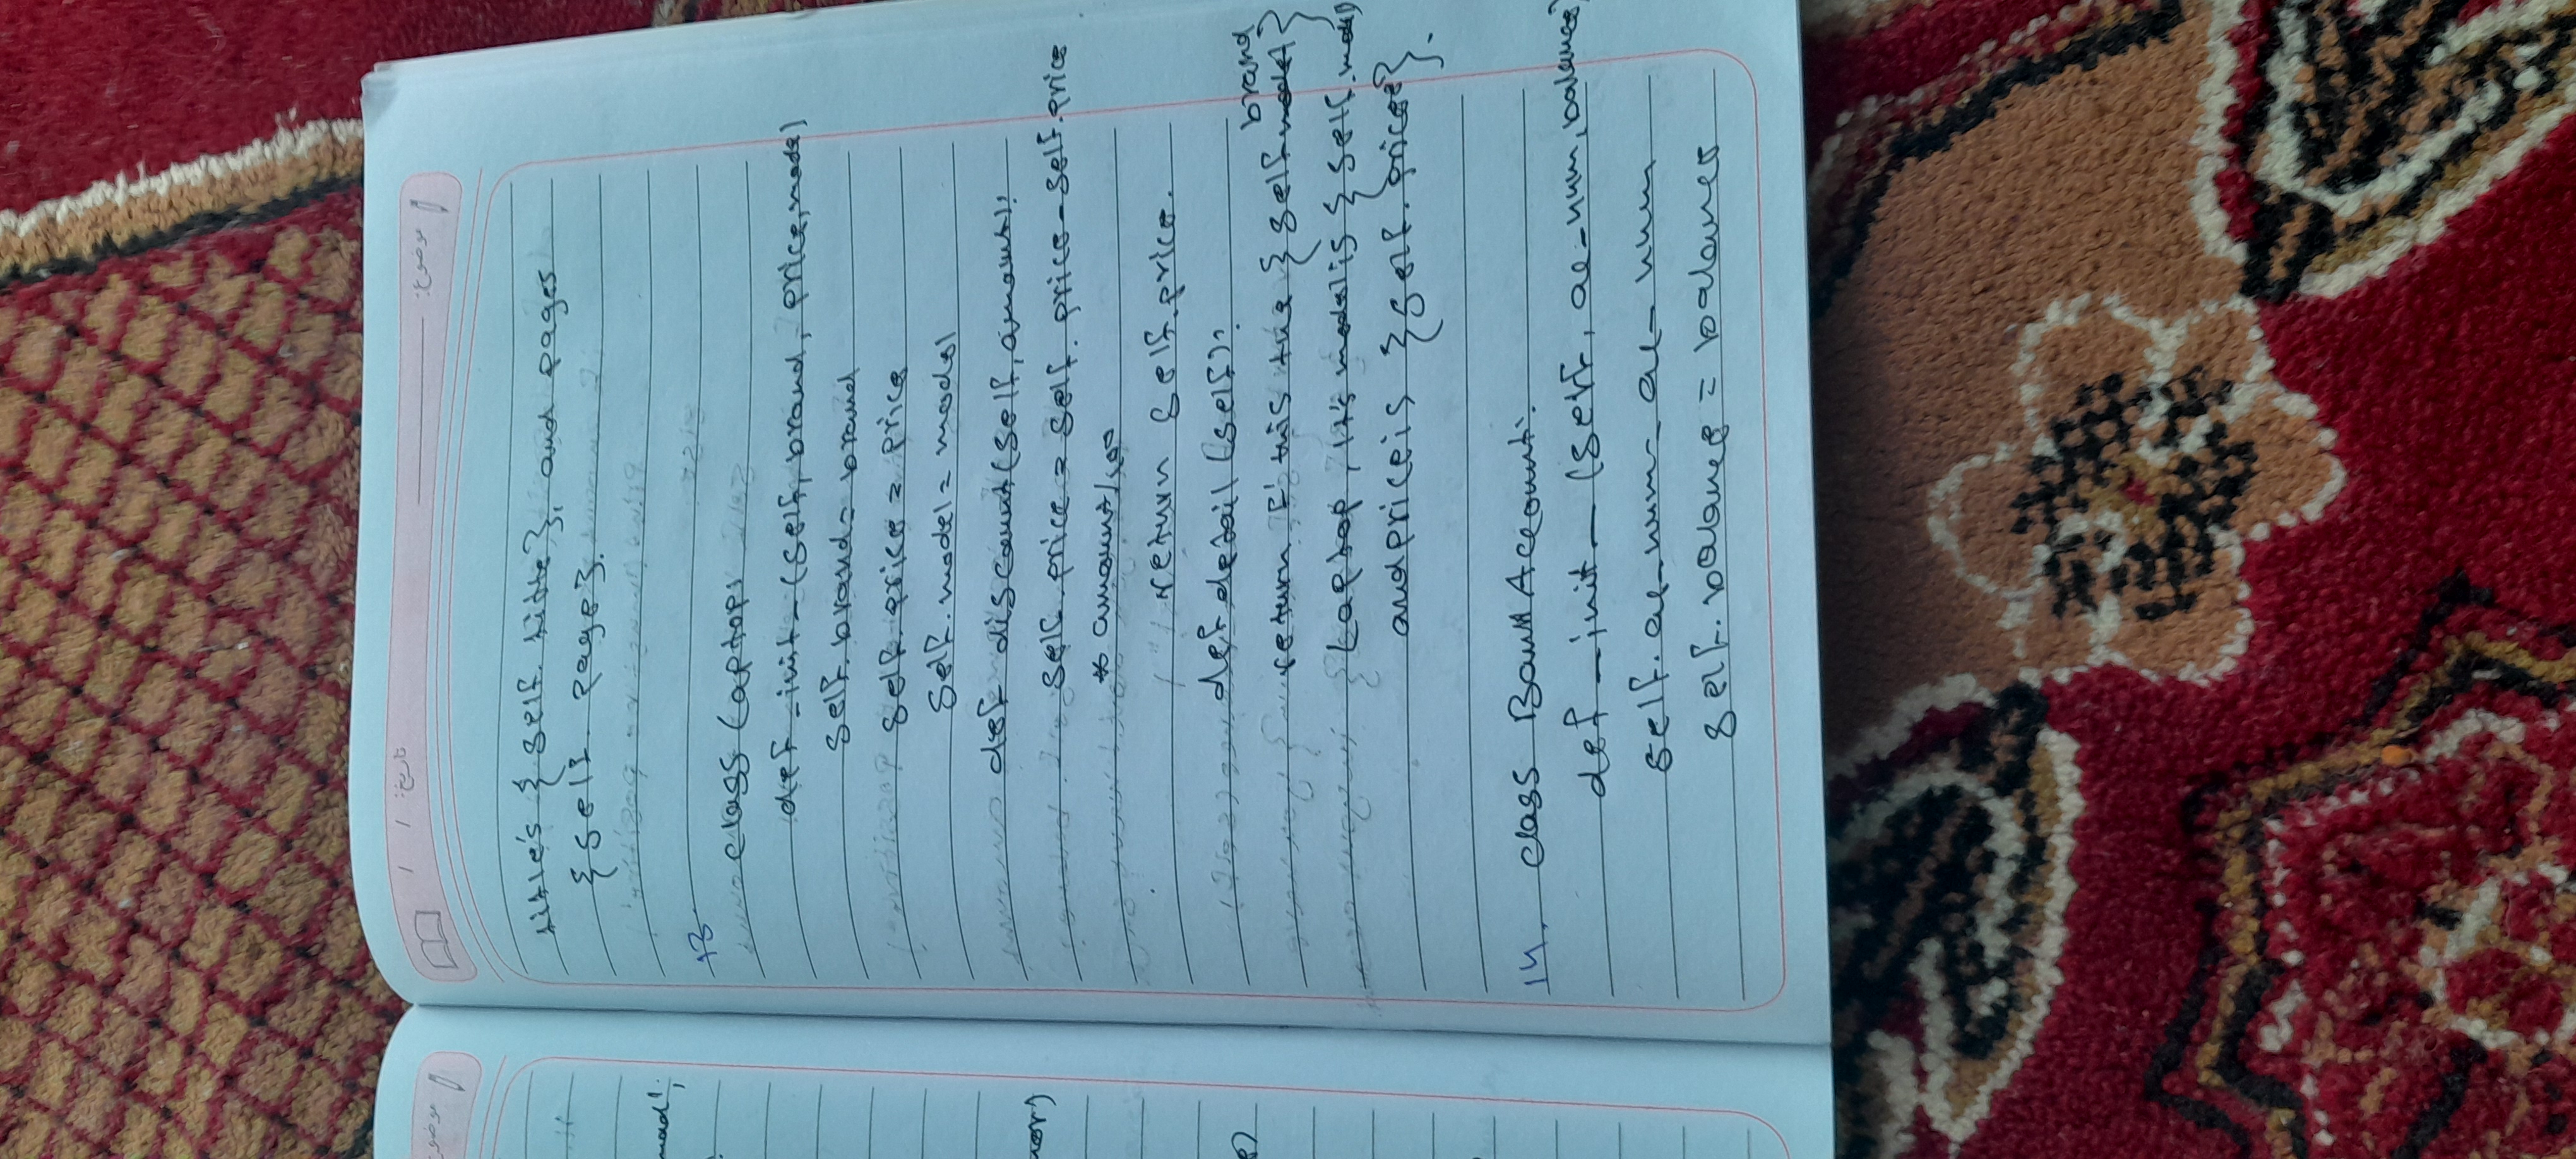 موضوع: تاریخ: / /
title's {self. title}, and pages
{self. page}.
13
class Laptop:
def _init_(self, brand, price, model)
self. brand = brand
self. price = price
self. model = model
def discount(self, amount):
self. price = self. price - self. price
* amount/100
return self. price.
def detail (self):
return f' this the {self brand}
Laptop, it's model is {self.
and price is {self. price}.
14. class BankAccount:
def _init_ (self, ac_num, balance)
self. ac_num = ac_num
self. balance = balance